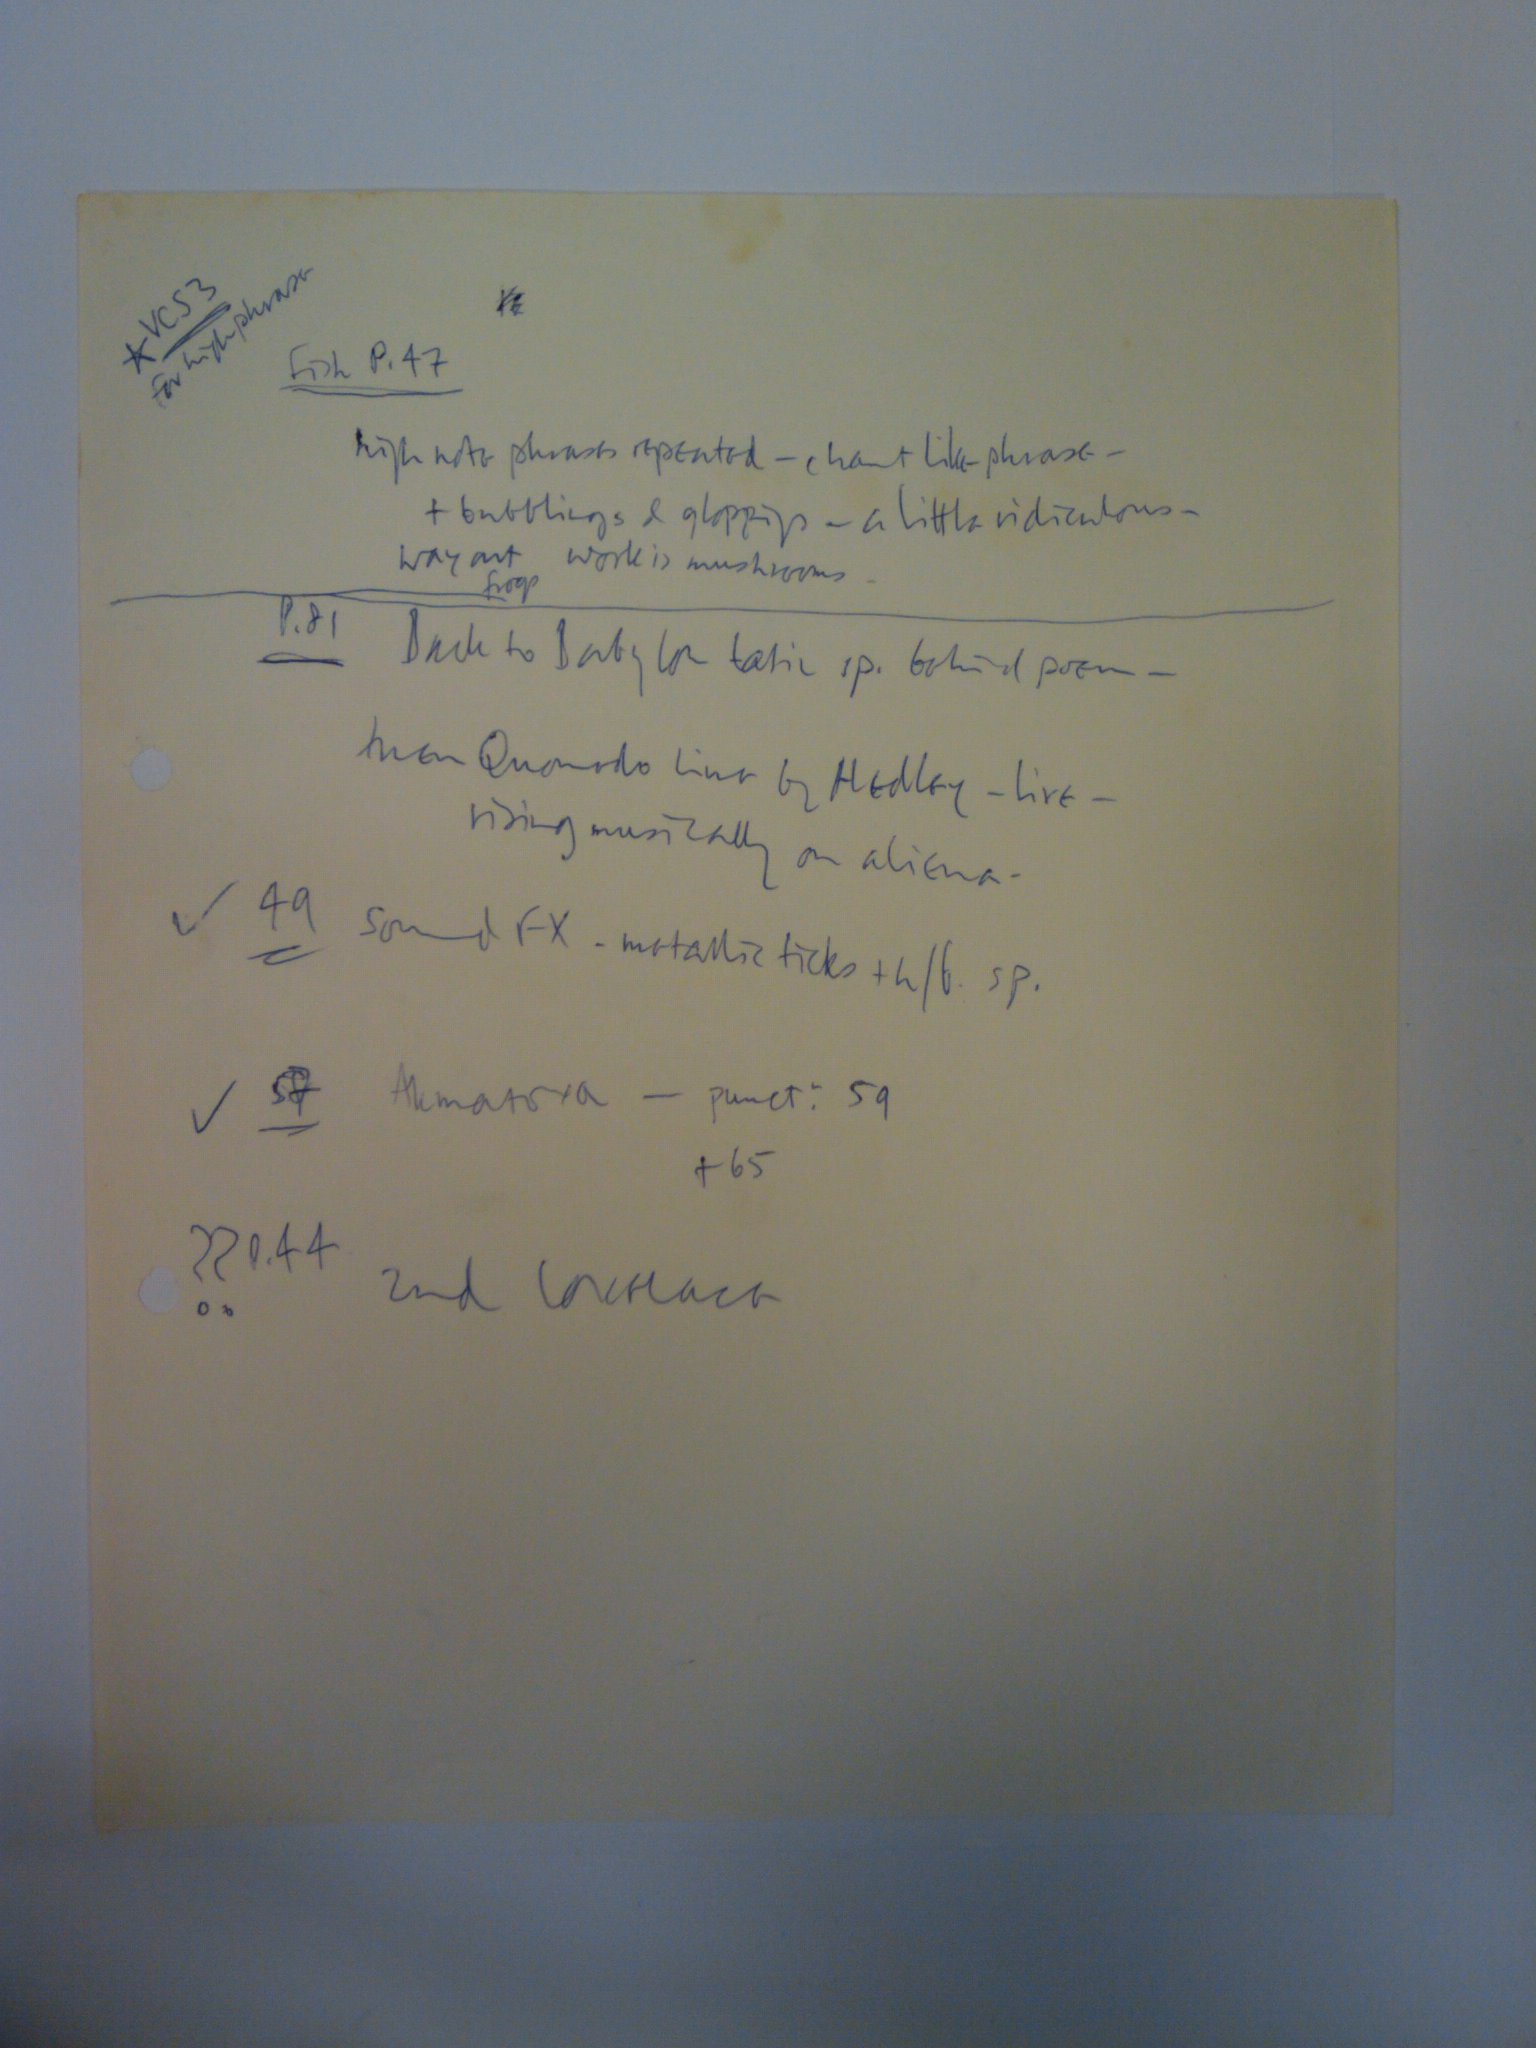 ★ VCS3
for high phrase
Fish P.47
high note phrases repeated – chant like phrase –
+ bubblings & gloppings – a little ridiculous –
way out work is mushrooms –
frogs
P.81 Back to Babylon sp. behind poem –
then Quomodo line by Hedley – live –
rising musically on aliena –
✓ 49 Sound FX – metallic ticks + h/b. sp.
✓ Akmatova — punct: 59
+ 65
?? P.44 2nd Lovelace